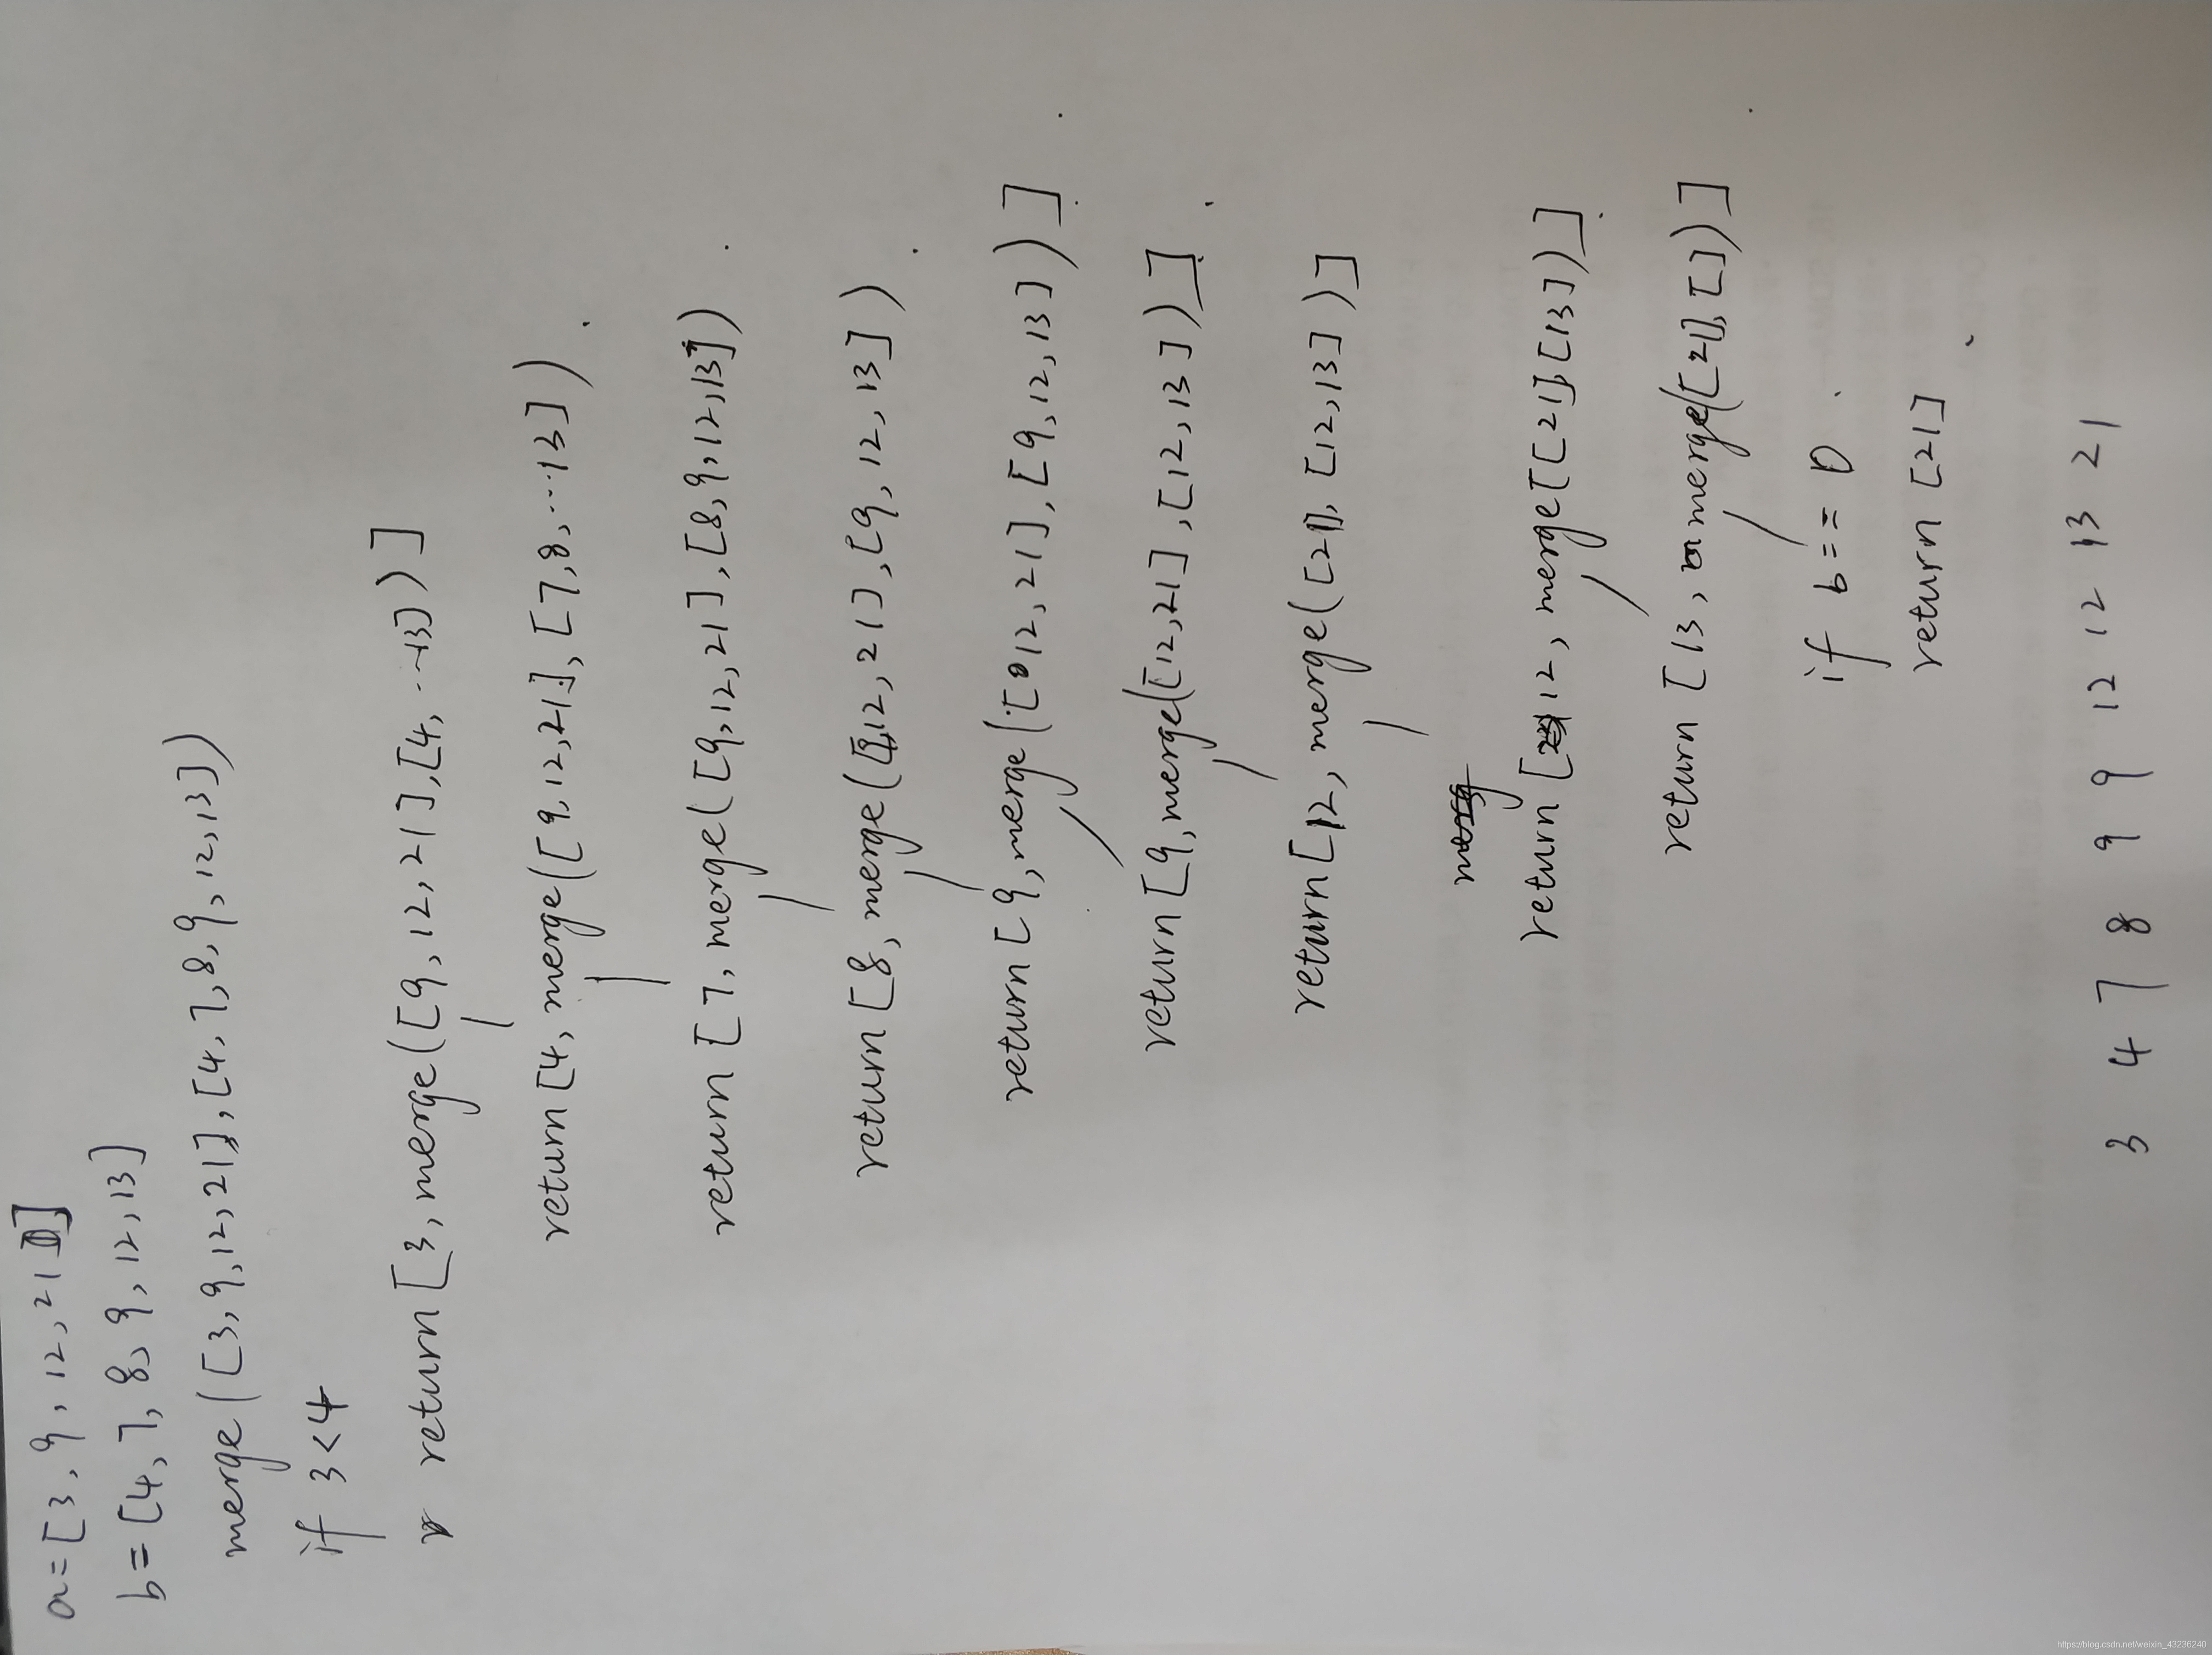 a=[3,9,12,21]
b=[4,7,8,9,12,13]
merge([3,9,12,21],[4,7,8,9,12,13])
if 3<4
r return[3,merge([9,12,21],[4,...13])]
return[4,merge([9,12,21],[7,8,...13])
return[7,merge([9,12,21],[8,9,12,13])
return[8,merge([9,12,21],[9,12,13])
return[9,merge([12,21],[9,12,13])]
return[9,merge([12,21],[12,13])]
return[12,merge([21],[12,13])]
return[12,merge[[21],[13])]
return[13,merge([21],[])]
if b==[]
return[21]
3 4 7 8 9 9 12 12 13 21
https://blog.csdn.net/weixin_43236240